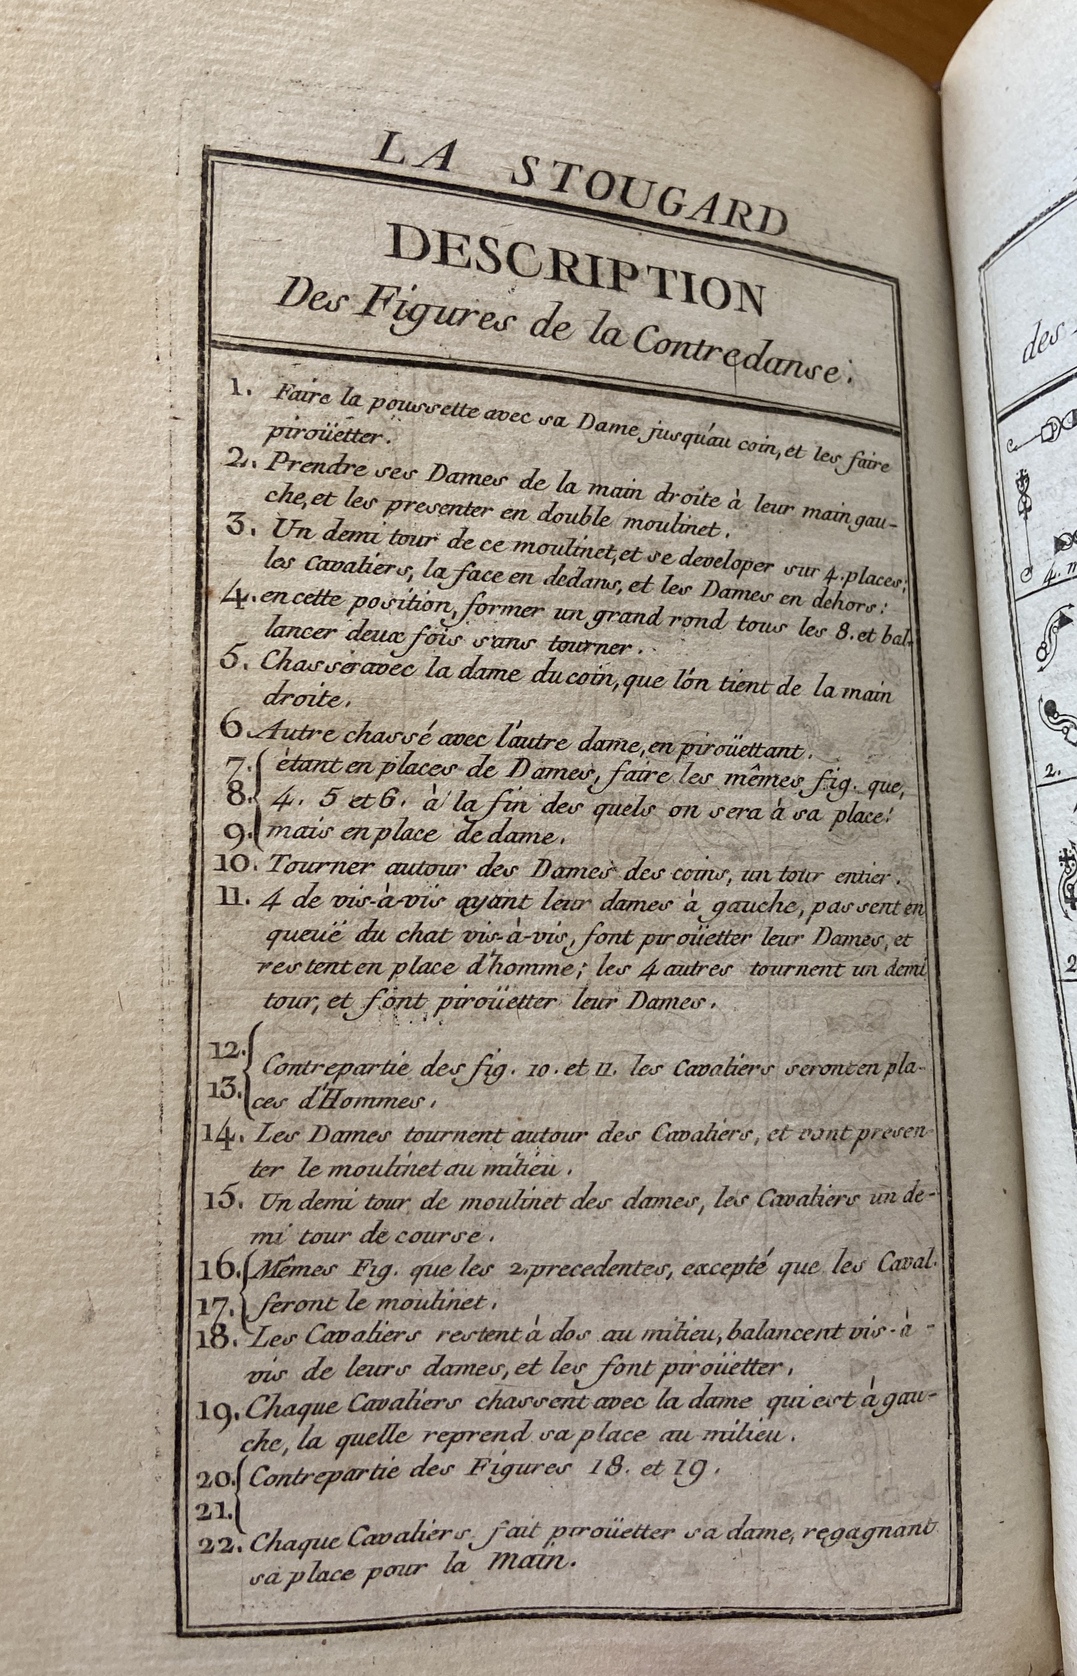 LA STOUGARD
DESCRIPTION
Des Figures de la Contredanse.
1. Faire la poussette avec sa Dame jusqu'au coin, et les faire
piroüetter.
2. Prendre ses Dames de la main droite à leur main gau-
che, et les presenter en double moulinet.
3. Un demi tour de ce moulinet, et se developer sur 4. places;
les Cavaliers, la face en dedans, et les Dames en dehors:
4. en cette position, former un grand rond tous les 8. et bal-
lancer deux fois sans tourner.
5. Chasser avec la dame du coin, que l'ón tient de la main
droite.
6. Autre chassé avec l'autre dame, en piroüettant.
7. étant en places de Dames, faire les mêmes fig. que,
8. 4. 5 et 6. à la fin des quels on sera à sa place!
9. mais en place de dame.
10. Tourner autour des Dames des coins, un tour entier.
11. 4 de vis-à-vis ayant leur dames à gauche, passent en
queuë du chat vis-à-vis, font piroüetter leur Dames, et
restent en place d'homme; les 4 autres tournent un demi
tour, et font piroüetter leur Dames.
12.
Contrepartie des fig. 10. et 11. les Cavaliers seront en pla-
13. ces d'Hommes.
14. Les Dames tournent autour des Cavaliers, et vont presen-
ter le moulinet au milieu.
15. Un demi tour de moulinet des dames, les Cavaliers un de-
mi tour de course.
16. Mêmes Fig. que les 2. precedentes, excepté que les Caval.
17. feront le moulinet.
18. Les Cavaliers restent à dos au milieu, balancent vis-à-
vis de leurs dames, et les font piroüetter.
19. Chaque Cavaliers chassent avec la dame qui est à gau-
che, la quelle reprend sa place au milieu.
20. Contrepartie des Figures 18. et 19.
21.
22. Chaque Cavaliers fait piroüetter sa dame, regagnant
sa place pour la main.
des
4.
2.
2